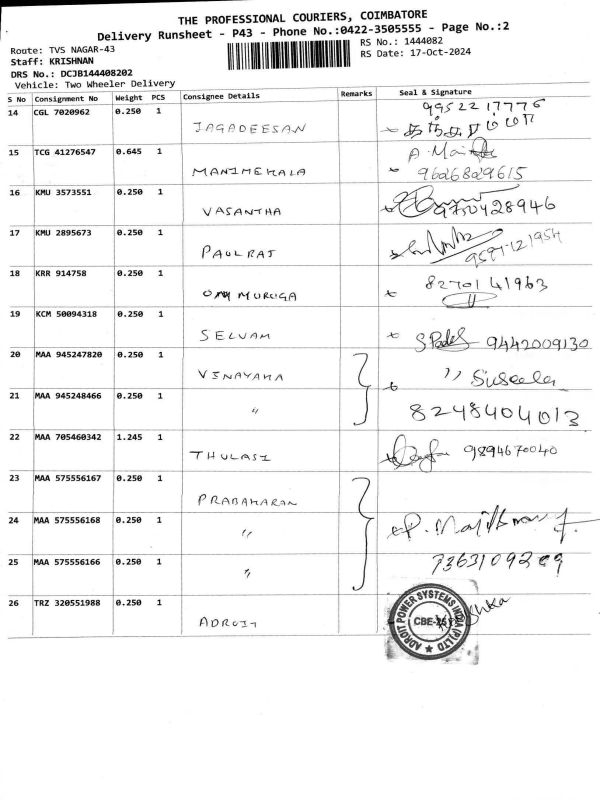 THE PROFESSIONAL COURIERS, COIMBATORE
Delivery Runsheet - P43 - Phone No.:0422-3505555 - Page No.:2
Route: TVS NAGAR-43
RS No.: 1444082
Staff: KRISHNAN
RS Date: 17-Oct-2024
DRS No.: DCJB144408202
Vehicle: Two Wheeler Delivery
S No Consignment No Weight PCS Consignee Details Remarks Seal & Signature
14 CGL 7020962 0.250 1 JAGADEESAN 9952217776
15 TCG 41276547 0.645 1 MANIMEKALA 9626829615
16 KMU 3573551 0.250 1 VASANTHA 9750428946
17 KMU 2895673 0.250 1 PAULRAJ
18 KRR 914758 0.250 1 OM MURUGA 8270141963
19 KCM 50094318 0.250 1 SELVAM 9442009130
20 MAA 945247820 0.250 1 VINAYAKA " Suseela
21 MAA 945248466 0.250 1 " 8248404013
22 MAA 705460342 1.245 1 THULASI 9894670040
23 MAA 575556167 0.250 1 PRABAKARAN
24 MAA 575556168 0.250 1 "
25 MAA 575556166 0.250 1 "
26 TRZ 320551988 0.250 1 ADROIT
ADROIT POWER SYSTEMS INDIA (P) LTD
CBE-25